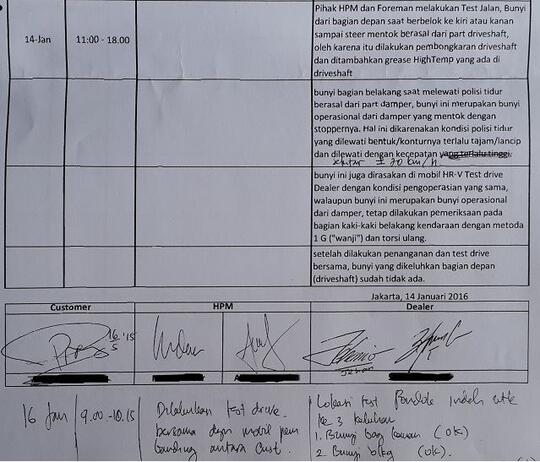 Pihak HPM dan Foreman melakukan Test Jalan, Bunyi
dari bagian depan saat berbelok ke kiri atau kanan
14-Jan 11:00 - 18.00 sampai steer mentok berasal dari part driveshaft,
oleh karena itu dilakukan pembongkaran driveshaft
dan ditambahkan grease HighTemp yang ada di
driveshaft
bunyi bagian belakang saat melewati polisi tidur
berasal dari part damper, bunyi ini merupakan bunyi
operasional dari damper yang mentok dengan
stoppernya. Hal ini dikarenakan kondisi polisi tidur
yang dilewati bentuk/konturnya terlalu tajam/lancip
dan dilewati dengan kecepatan yang terlalu tinggi.
± 20 km/h.
bunyi ini juga dirasakan di mobil HR-V Test drive
Dealer dengan kondisi pengoperasian yang sama,
walaupun bunyi ini merupakan bunyi operasional
dari damper, tetap dilakukan pemeriksaan pada
bagian kaki-kaki belakang kendaraan dengan metoda
1 G ("wanji") dan torsi ulang.
setelah dilakukan penanganan dan test drive
bersama, bunyi yang dikeluhkan bagian depan
(driveshaft) sudah tidak ada.
Jakarta, 14 Januari 2016
Customer HPM Dealer
16 Jan 9.00-10.15 Dilakukan test drive Lokasi test Pondok Indah utk
bersama dgn mobil ke 3 keluhan
antara Cust. 1. Bunyi bag kanan (ok)
2. Bunyi blkg (ok).